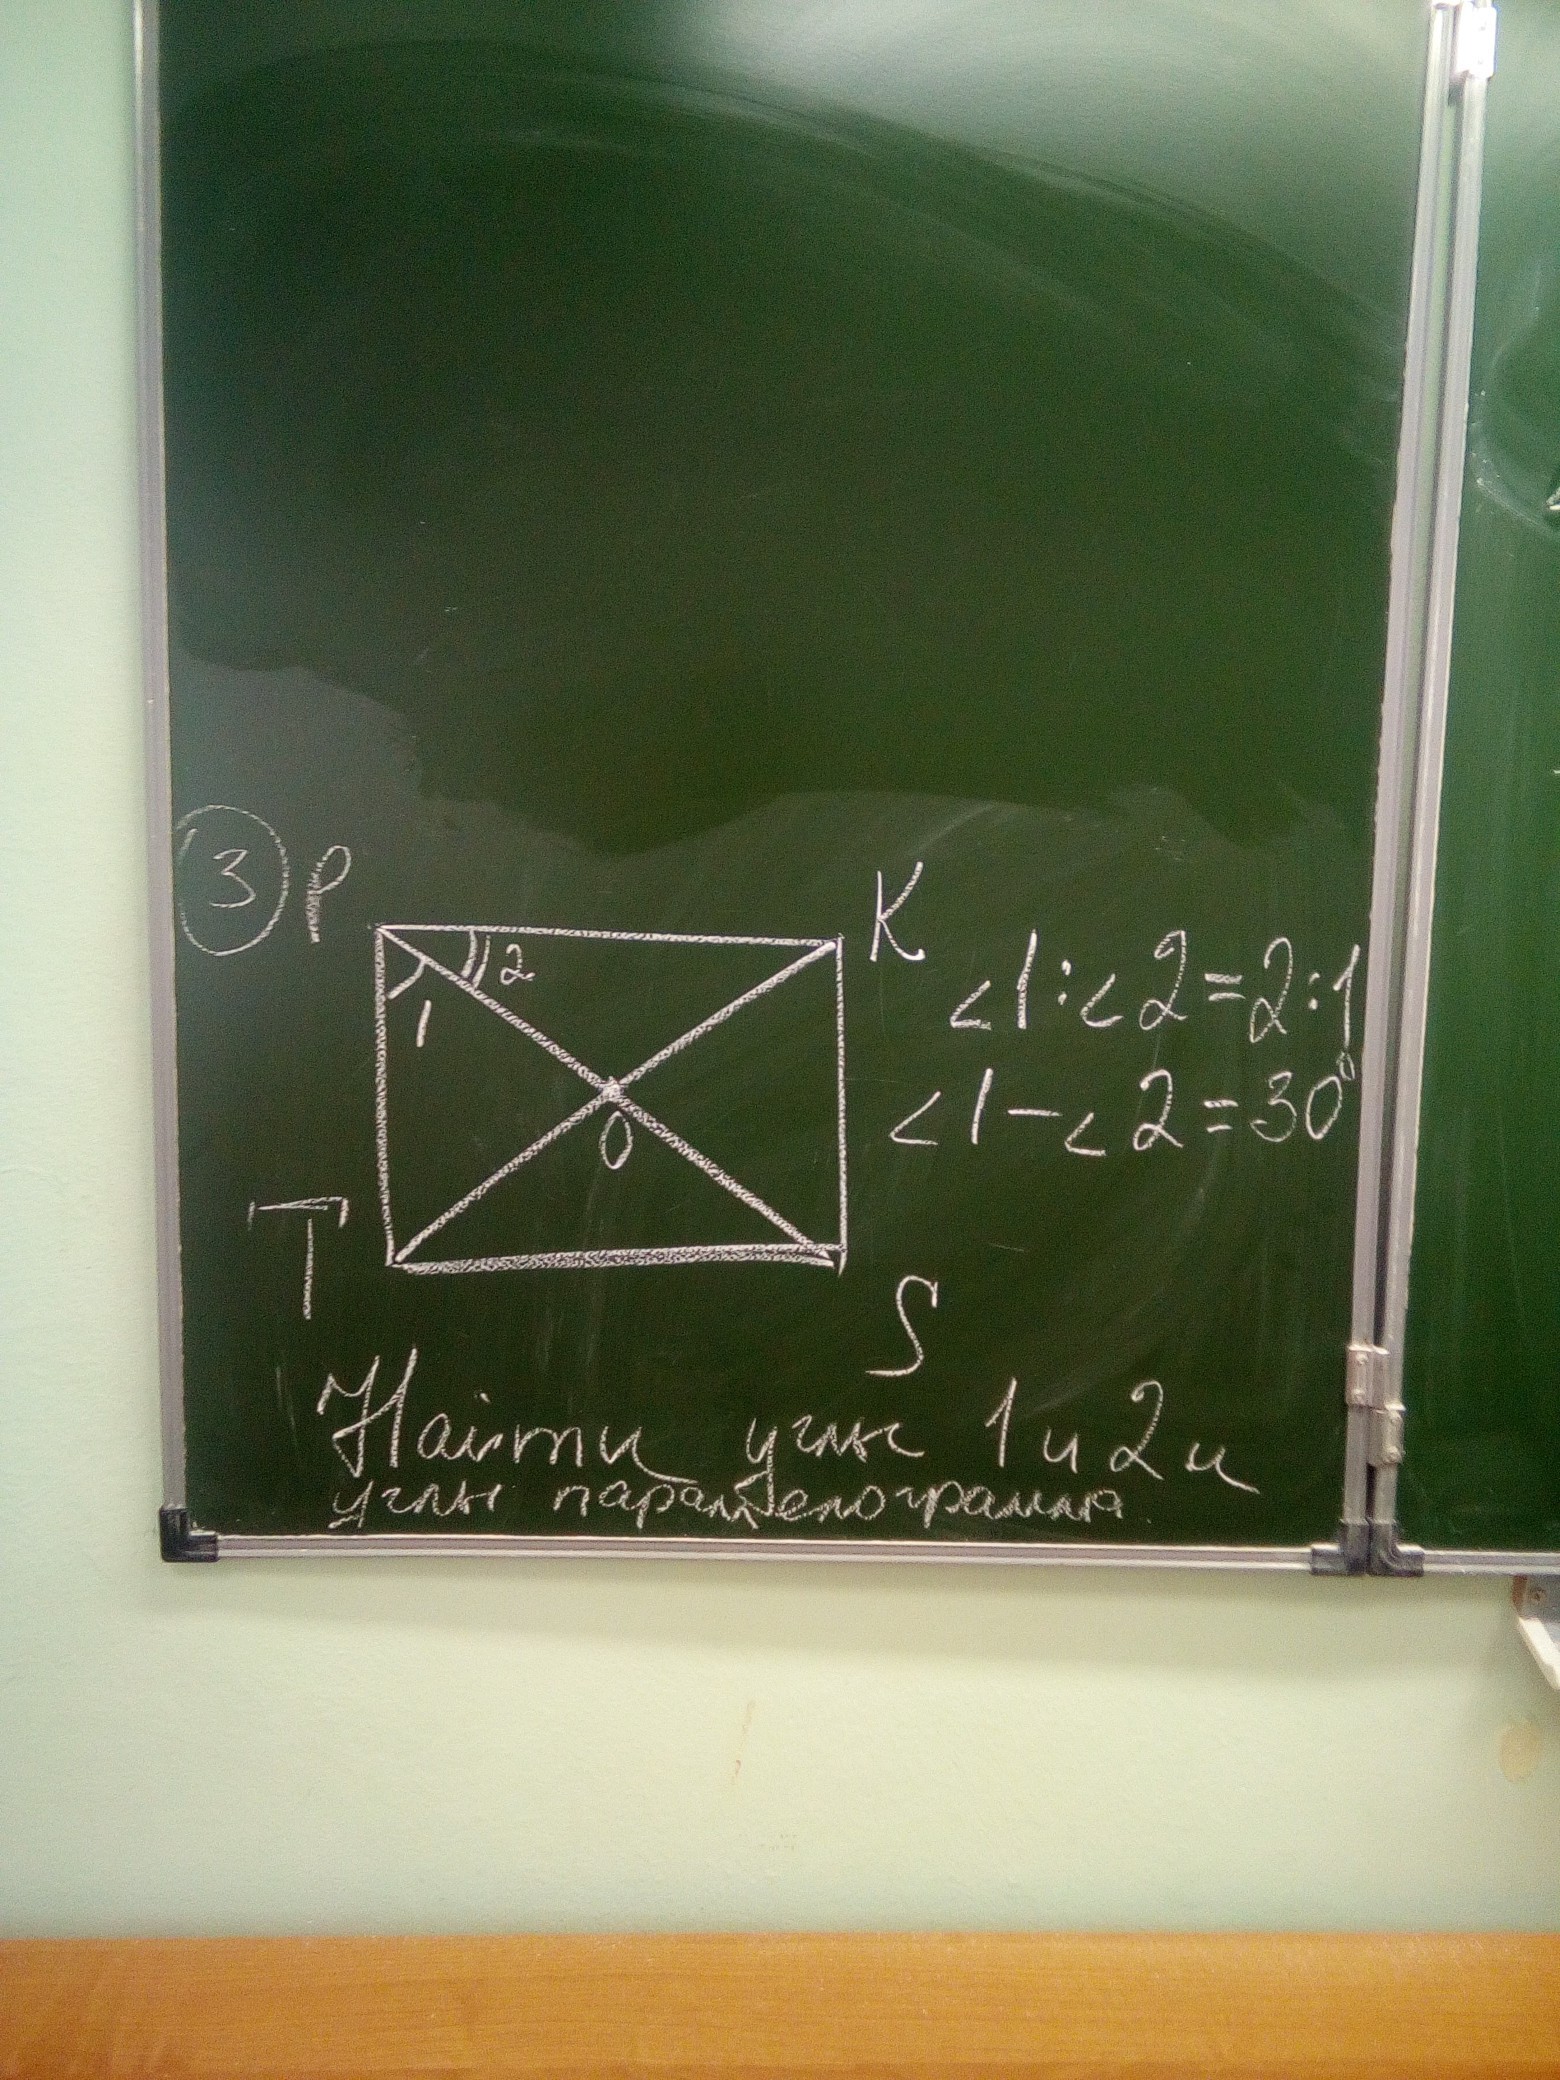 3 P
K
2
1
<1:<2=2:1
<1-<2=30°
O
T
S
Найти углы 1 и 2 и
углы параллелограмма